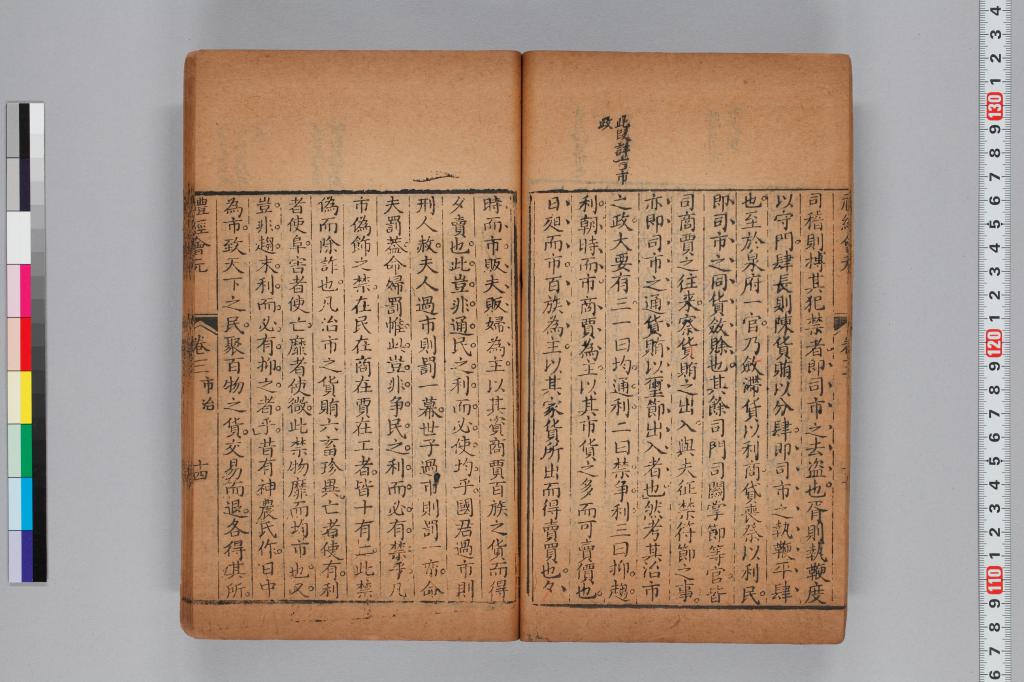 司稽則搏其犯禁者即司市之去盜也胥則執鞭度
以守門肆長則陳貨賄以分肆即司市之執鞭平肆
也至於泉府一官乃斂滯貨以利商貸喪祭以利民
即司市之同貨斂賖也其餘司門司關掌節等官皆
司商賈之往來察貨賄之出入與夫征禁符節之事
亦即司市之通貨賄以璽節出入者也然考其治市
之政大要有三一曰均通利二曰禁争利三曰抑趨
利朝時而市商賈為主以其市貨之多而可賣價也
日昃而市百族為主以其家貨所出而得賣買也夕
此段詳言市
政
時而市販夫販婦為主以其資商賈百族之貨而得
夕賣也此豈非通民之利而必使均乎國君過市則
刑人赦夫人過市則罰一幕世子過市則罰一帟命
夫罰蓋命婦罰帷此豈非争民之利而必有禁乎凡
市偽飾之禁在民在商在賈在工者皆十有二此禁
偽而除詐也凡治市之貨賄六畜珍異亡者使有利
者使阜害者使亡靡者使微此禁物靡而均市也又
豈非趨末利而必有抑之者乎昔有神農氏作日中
為市致天下之民聚百物之貨交易而退各得其所
禮經會元
卷三
市治
十四